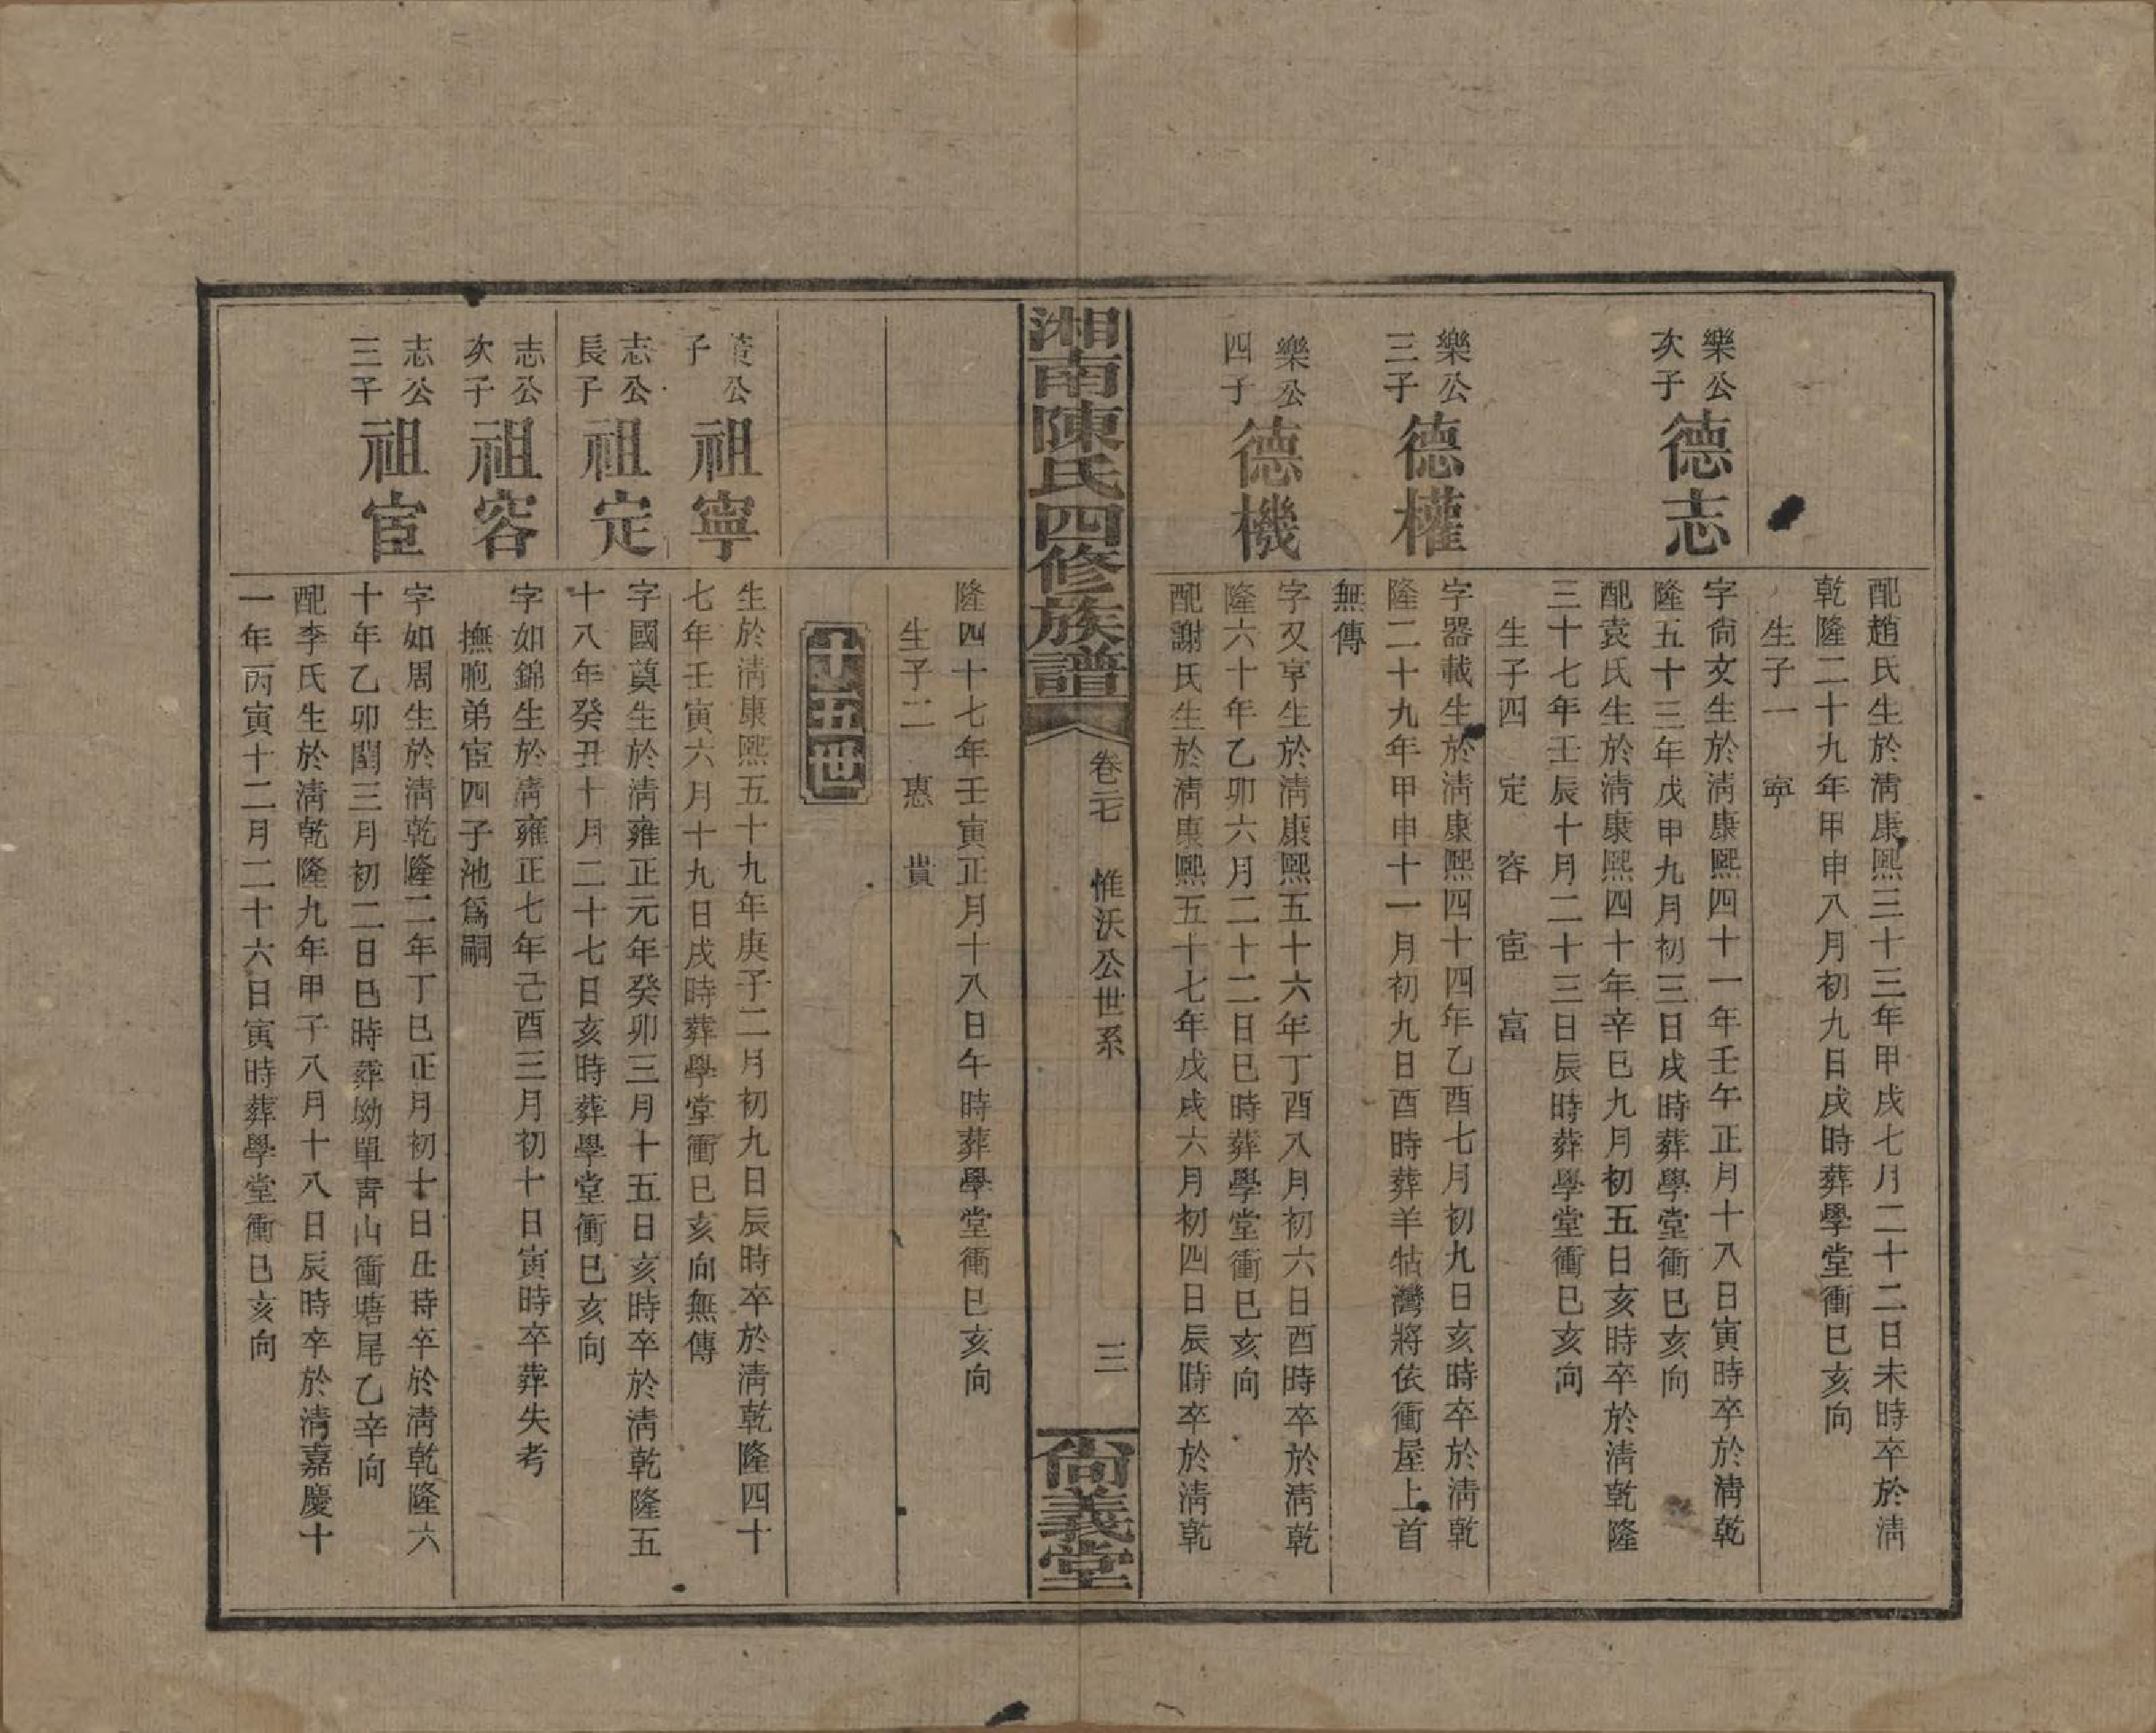 配趙氏生於淸康熙三十三年甲戌七月二十二日未時卒於淸
乾隆二十九年甲申八月初九日戌時葬學堂衝巳亥向
生子一　寧
樂公次子
德志
字尙文生於淸康熙四十一年壬午正月十八日寅時卒於淸乾
隆五十三年戊申九月初三日戌時葬學堂衝巳亥向
配袁氏生於淸康熙四十年辛巳九月初五日亥時卒於淸乾隆
三十七年壬辰十月二十三日辰時葬學堂衝巳亥向
生子四　定　容　宦　富
樂公三子
德權
字器載生於淸康熙四十四年乙酉七月初九日亥時卒於淸乾
隆二十九年甲申十一月初九日酉時葬羊牯灣將依衝屋上首
無傳
樂公四子
德機
字又亨生於淸康熙五十六年丁酉八月初六日酉時卒於淸乾
隆六十年乙卯六月二十二日巳時葬學堂衝巳亥向
配謝氏生於淸康熙五十七年戊戌六月初四日辰時卒於淸乾
湘南陳氏四修族譜
卷二七　惟沃公世系　三
尙義堂
隆四十七年壬寅正月十八日午時葬學堂衝巳亥向
生子二　惠　貴
十五世
公子
祖寧
生於淸康熙五十九年庚子二月初九日辰時卒於淸乾隆四十
七年壬寅六月十九日戌時葬學堂衝巳亥向無傳
志公長子
祖定
字國奠生於淸雍正元年癸卯三月十五日亥時卒於淸乾隆五
十八年癸丑十月二十七日亥時葬學堂衝巳亥向
志公次子
祖容
字如錦生於淸雍正七年己酉三月初十日寅時卒葬失考
撫胞弟宦四子池爲嗣
志公三子
祖宦
字如周生於淸乾隆二年丁巳正月初十日丑時卒於淸乾隆六
十年乙卯閏三月初二日巳時葬坳單靑山衝塘尾乙辛向
配李氏生於淸乾隆九年甲子八月十八日辰時卒於淸嘉慶十
一年丙寅十二月二十六日寅時葬學堂衝巳亥向